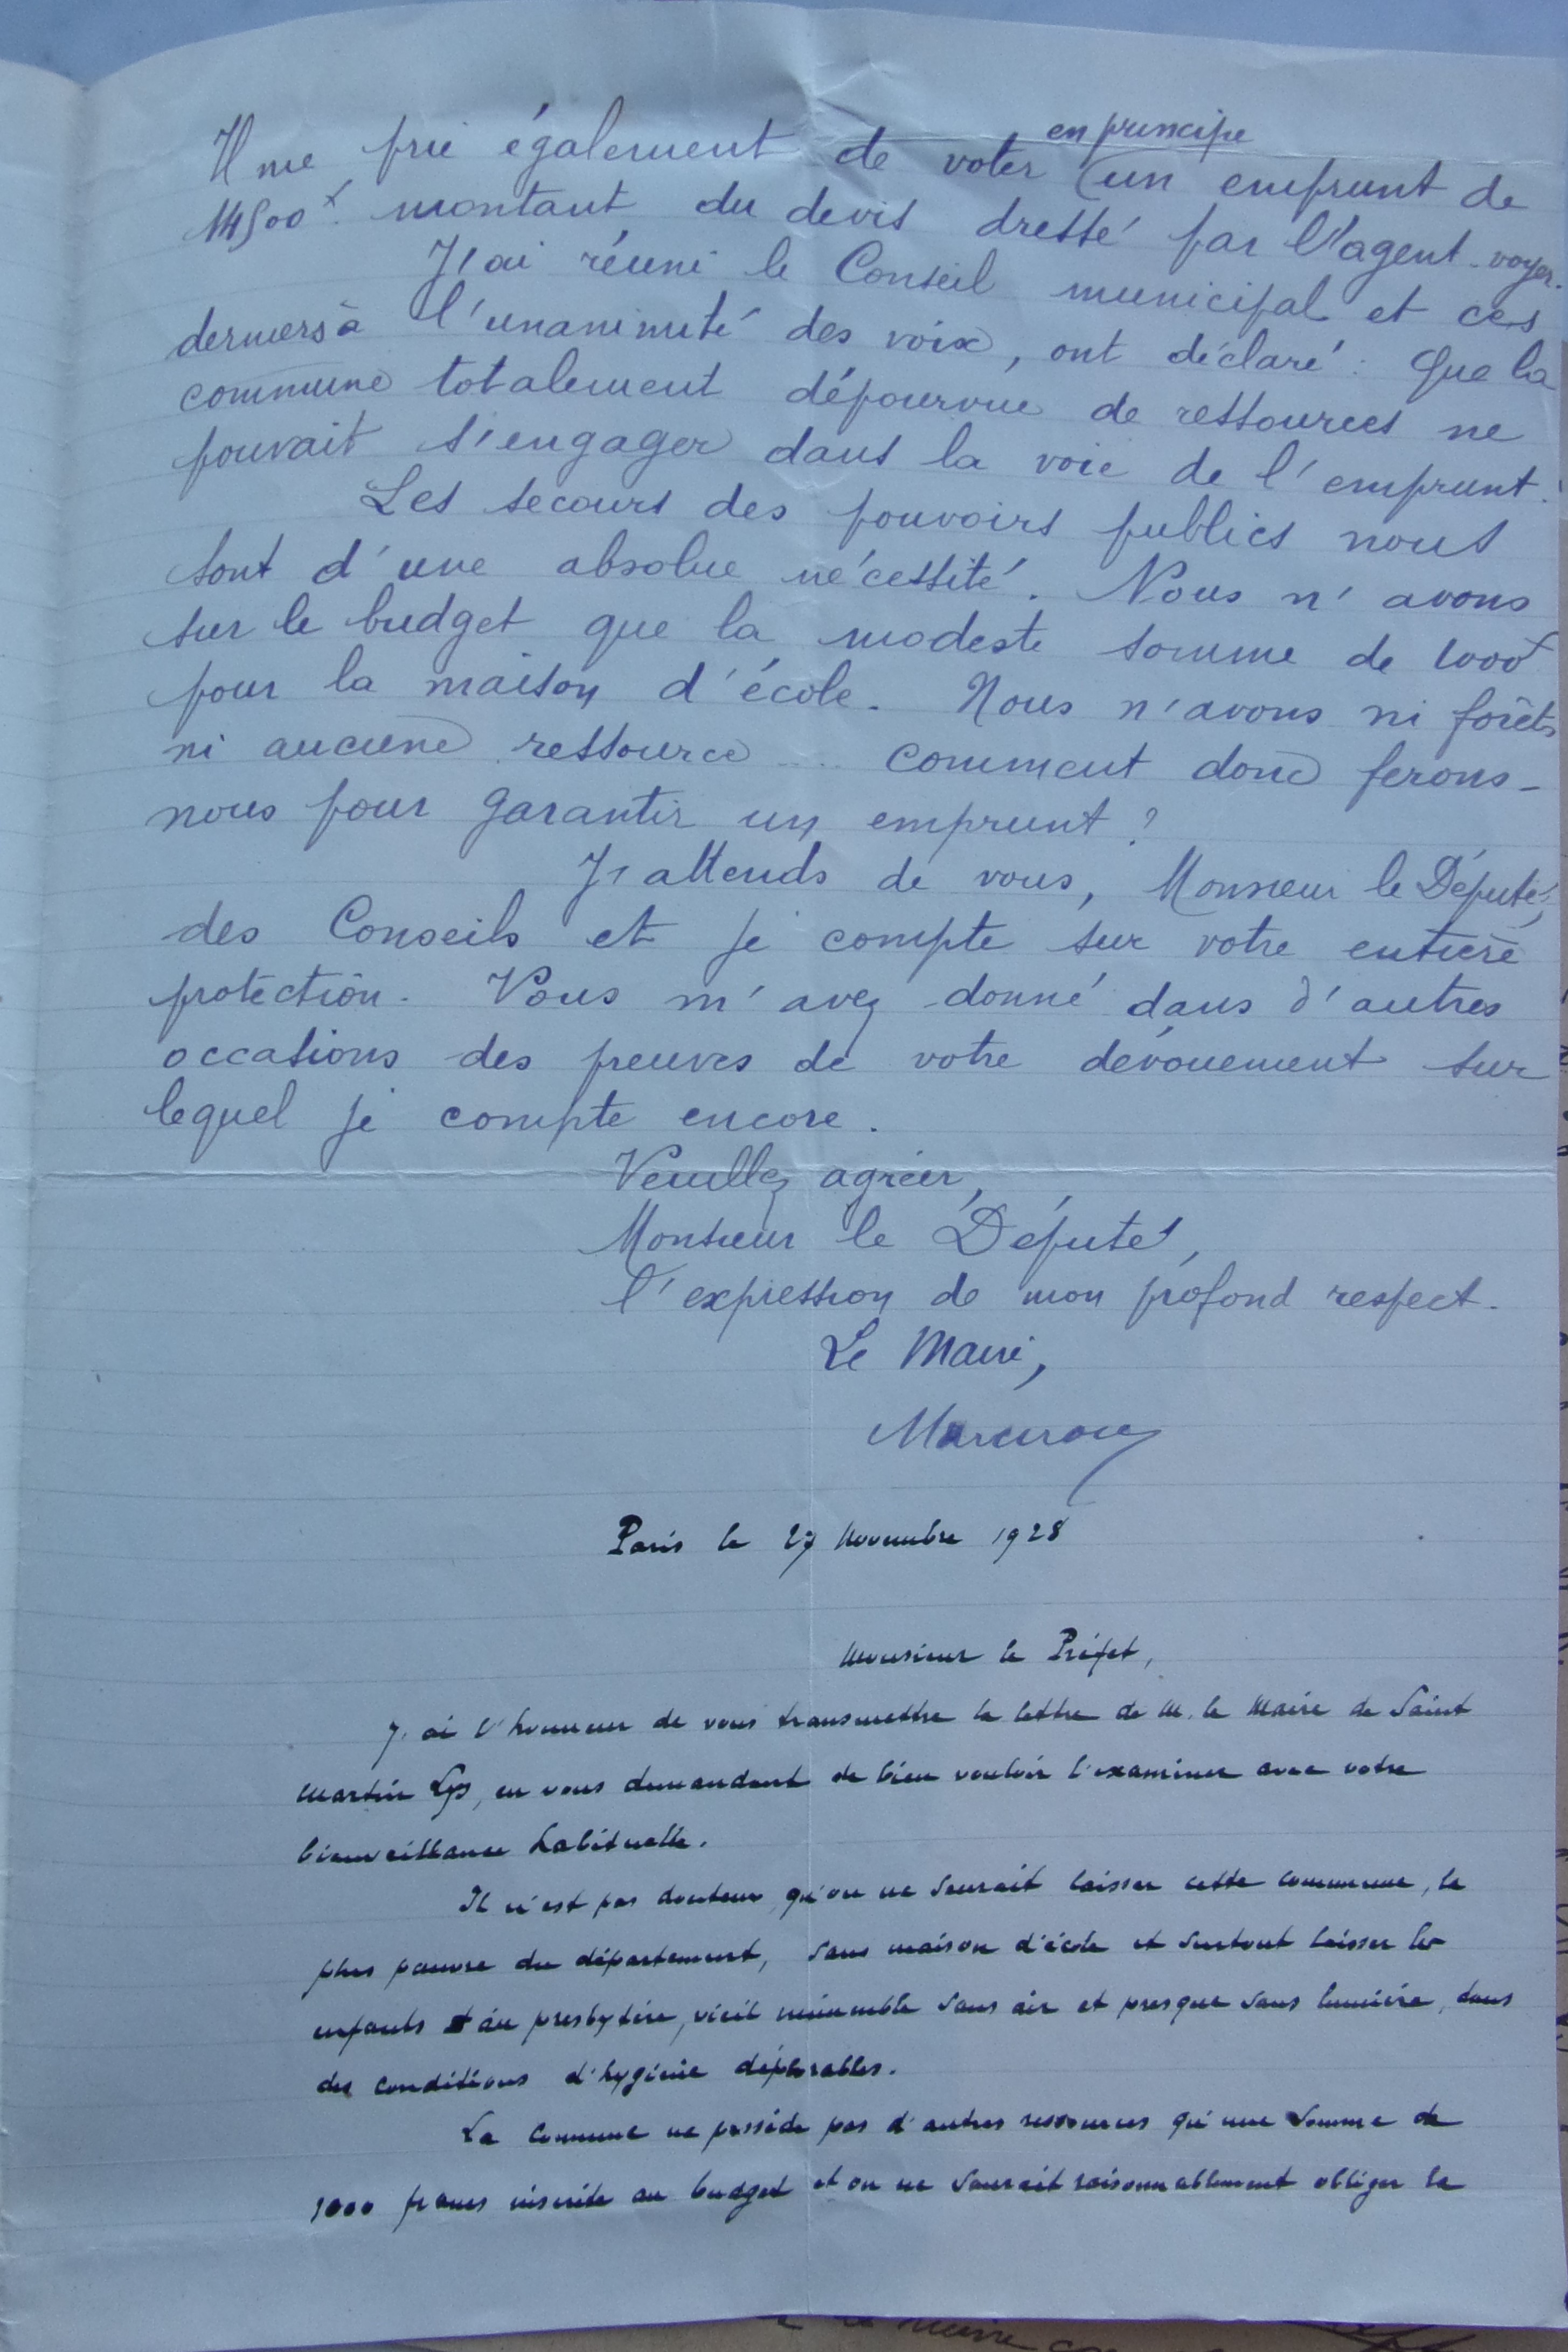 en principe
Il me prie également de voter (un emprunt de
14500f montant du devis dressé par l'agent-voyer.
J'ai réuni le Conseil municipal et ces
derniers à l'unanimité des voix, ont déclaré : Que la
commune totalement dépourvue de ressources ne
pouvait s'engager dans la voie de l'emprunt.
Les secours des pouvoirs publics nous
sont d'une absolue nécessité. Nous n'avons
sur le budget que la modeste somme de 1000f
pour la maison d'école. Nous n'avons ni forêts
ni aucune ressource .... comment donc ferons-
nous pour garantir un emprunt ?
J'attends de vous, Monsieur le Député,
des Conseils et je compte sur votre entière
protection. Vous m'avez donné dans d'autres
occasions des preuves de votre dévouement sur
lequel je compte encore.
Veuillez agréer,
Monsieur le Député,
l'expression de mon profond respect.
Le Maire,
Paris le 27 Novembre 1928
Monsieur le Préfet,
J'ai l'honneur de vous transmettre la lettre de M. le Maire de Saint
Martin Lys, en vous demandant de bien vouloir l'examiner avec votre
bienveillance habituelle.
Il n'est pas douteux qu'on ne saurait laisser cette commune, la
plus pauvre du département, sans maison d'école et surtout laisser les
enfants au presbytère, vieil immeuble sans air et presque sans lumière, dans
des conditions d'hygiène déplorables.
La commune ne possède pas d'autres ressources qu'une somme de
1000 francs inscrite au budget et on ne saurait raisonnablement obliger la